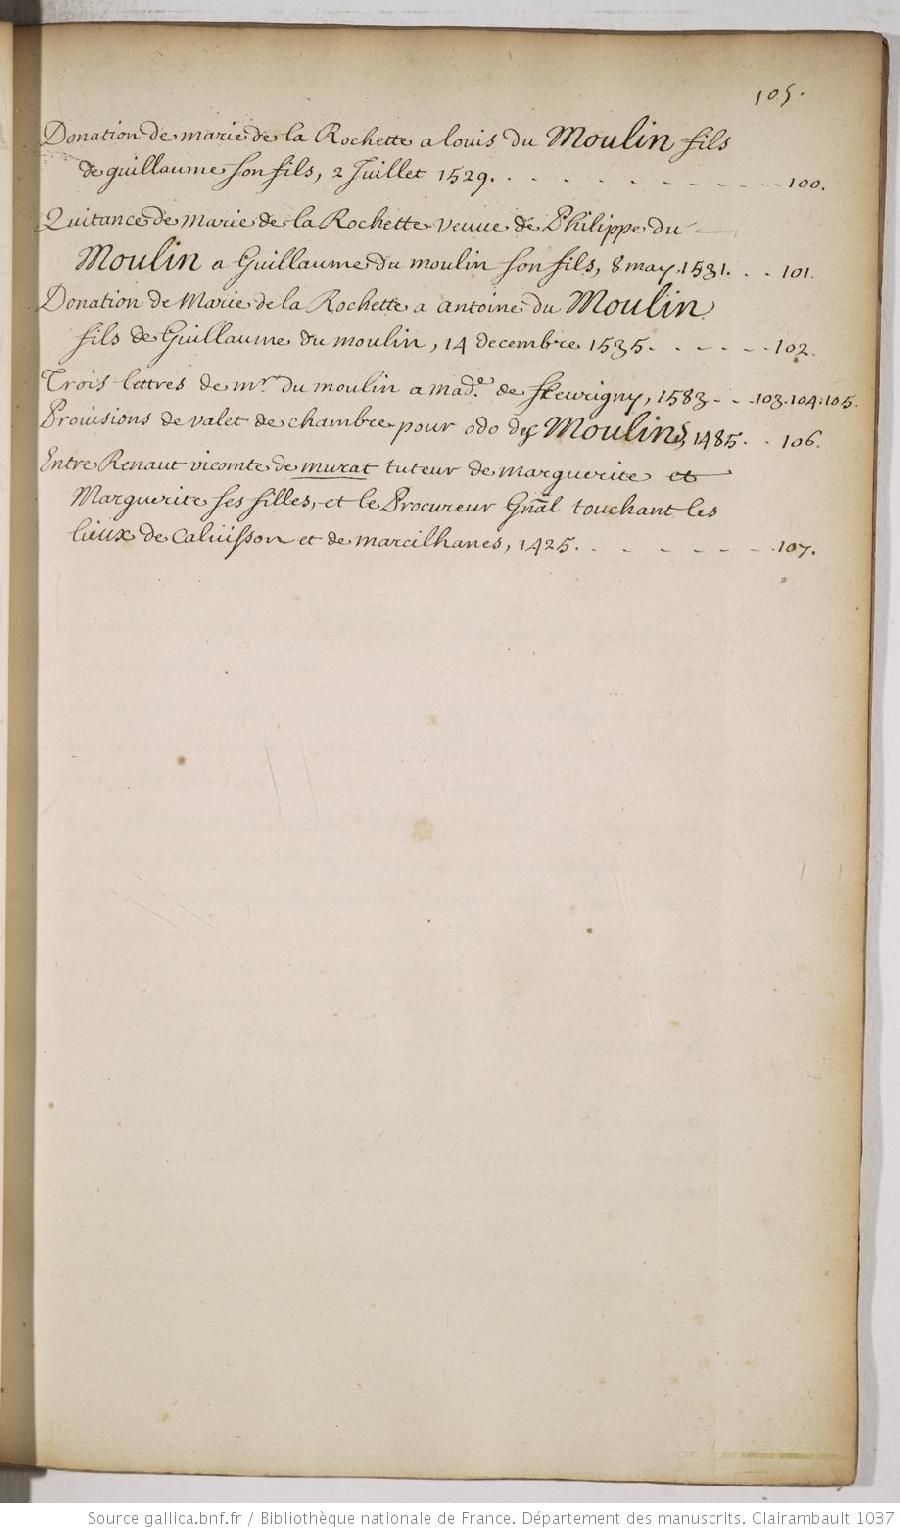 105.
Donation de marie de la Rochette a louis du Moulin fils
de guillaume son fils, 2 Juillet 1529. . . . . . . - - - - 100.
Quitance de Marie de la Rochette veuue de Philippe du
Moulin a Guillaume du moulin son fils, 8 may 1531. . . 101.
Donation de Marie de la Rochette a antoine du Moulin
fils de Guillaume du moulin, 14 decembre 1535. - - - - - 102.
Trois lettres de mr. du moulin a made. de fleurigny, 1583 - - . 103.104.105.
Prouisions de valet de chambre pour odo des Moulins, 1485. . 106.
Entre Renaut vicomte de murat tuteur de Marguerite et
Marguerite ses filles, et le Procureur Gnãl touchant les
lieux de Caluisson et de marcilhanes, 1425. . . - - - - 107.
Source gallica.bnf.fr / Bibliothèque nationale de France. Département des manuscrits. Clairambault 1037